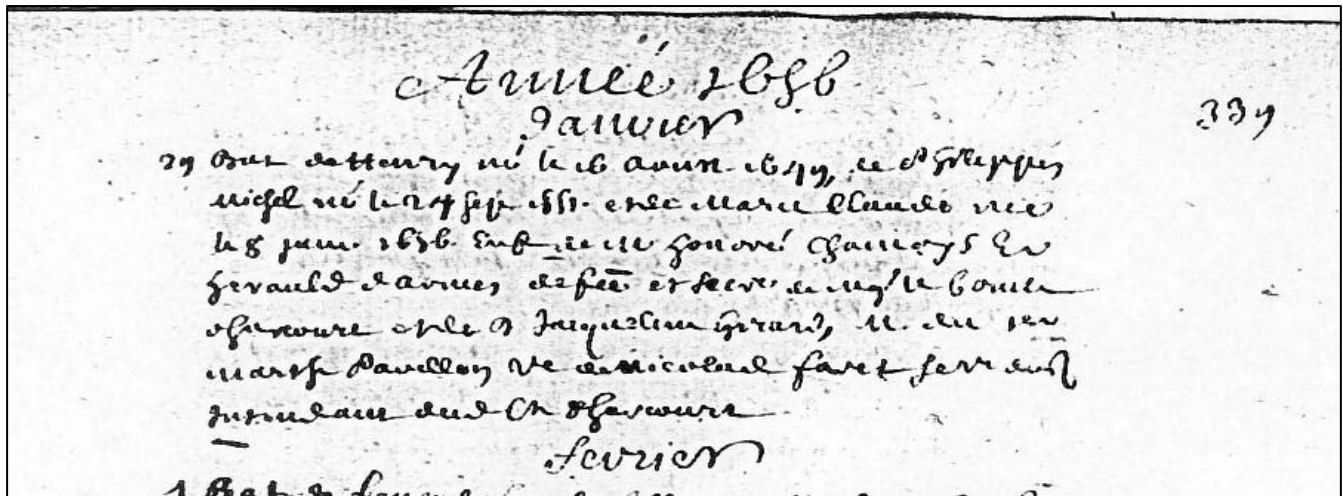 Année 1656
Janvier
339
29 Bat. de Henry né le 16 Aoust 1649, de Philippes
Michel né le 24 sep. 1651. et de Marie Claude née
le 8 janv. 1656. Enf. de Mr honoré Ec
herauld d'armes de et secre. de Mgr le Comte
d'harcourt et de D Jacqueline Girard, M. du 1er
Marthe Pavillon ve de Nicolas faret
Intendant dud Cte d'harcourt
fevrier